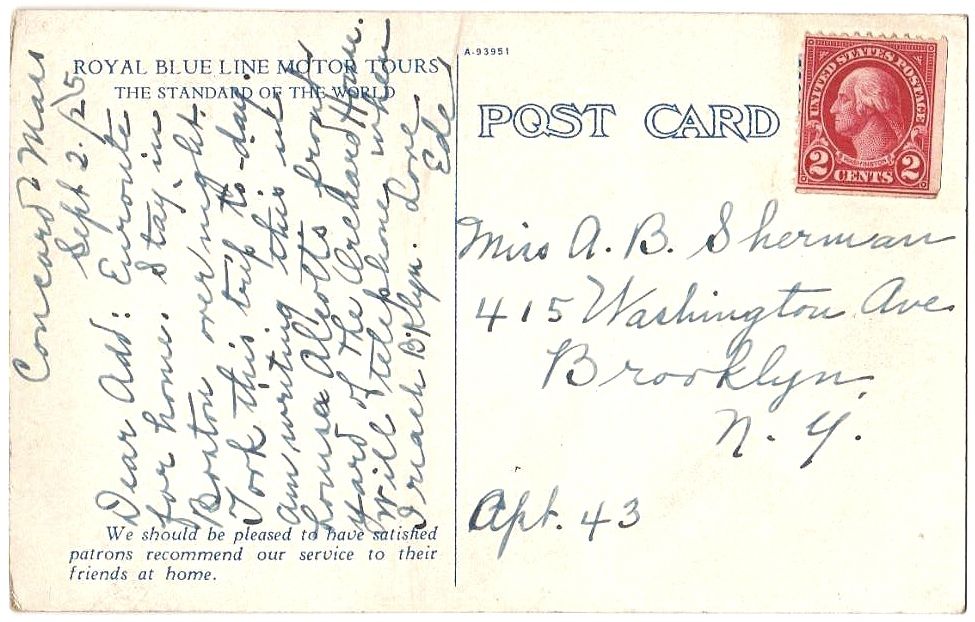 ROYAL BLUE LINE MOTOR TOURS
THE STANDARD OF THE WORLD
Concord Mass
Sept 2. /25
Dear Add: Enroute
for home. Stay in
Boston over night.
Took this trip to-day.
Am writing this in
Louisa Alcotts front
yard of the Orchard House.
Will telephone when
I reach B'klyn. Love
Ede
We should be pleased to have satisfied
patrons recommend our service to their
friends at home.
A-93951
POST CARD
UNITED STATES POSTAGE
WASHINGTON
2 CENTS 2
Miss A. B. Sherman
415 Washington Ave
Brooklyn,
N. Y.
Apt. 43